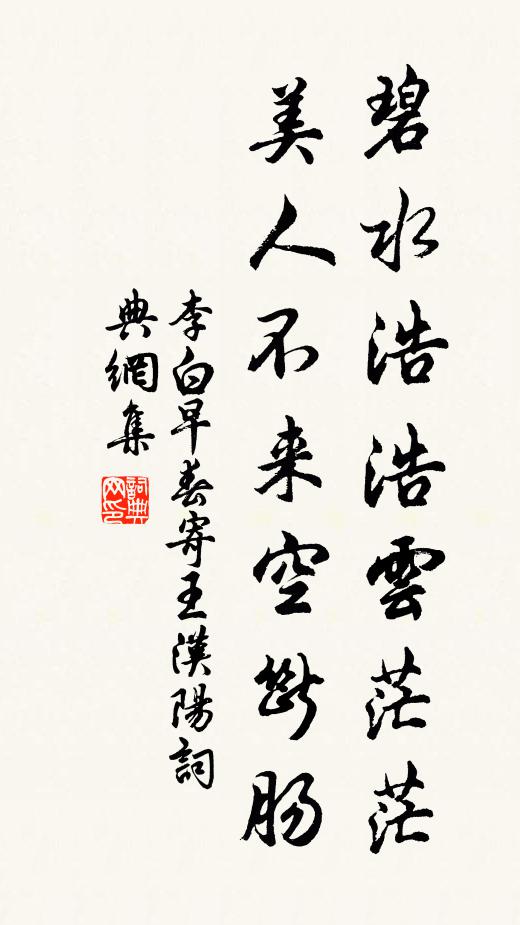 碧水浩浩雲茫茫
美人不来空斷腸
李白早春寄王漢陽詞
典網集
詞典
网印